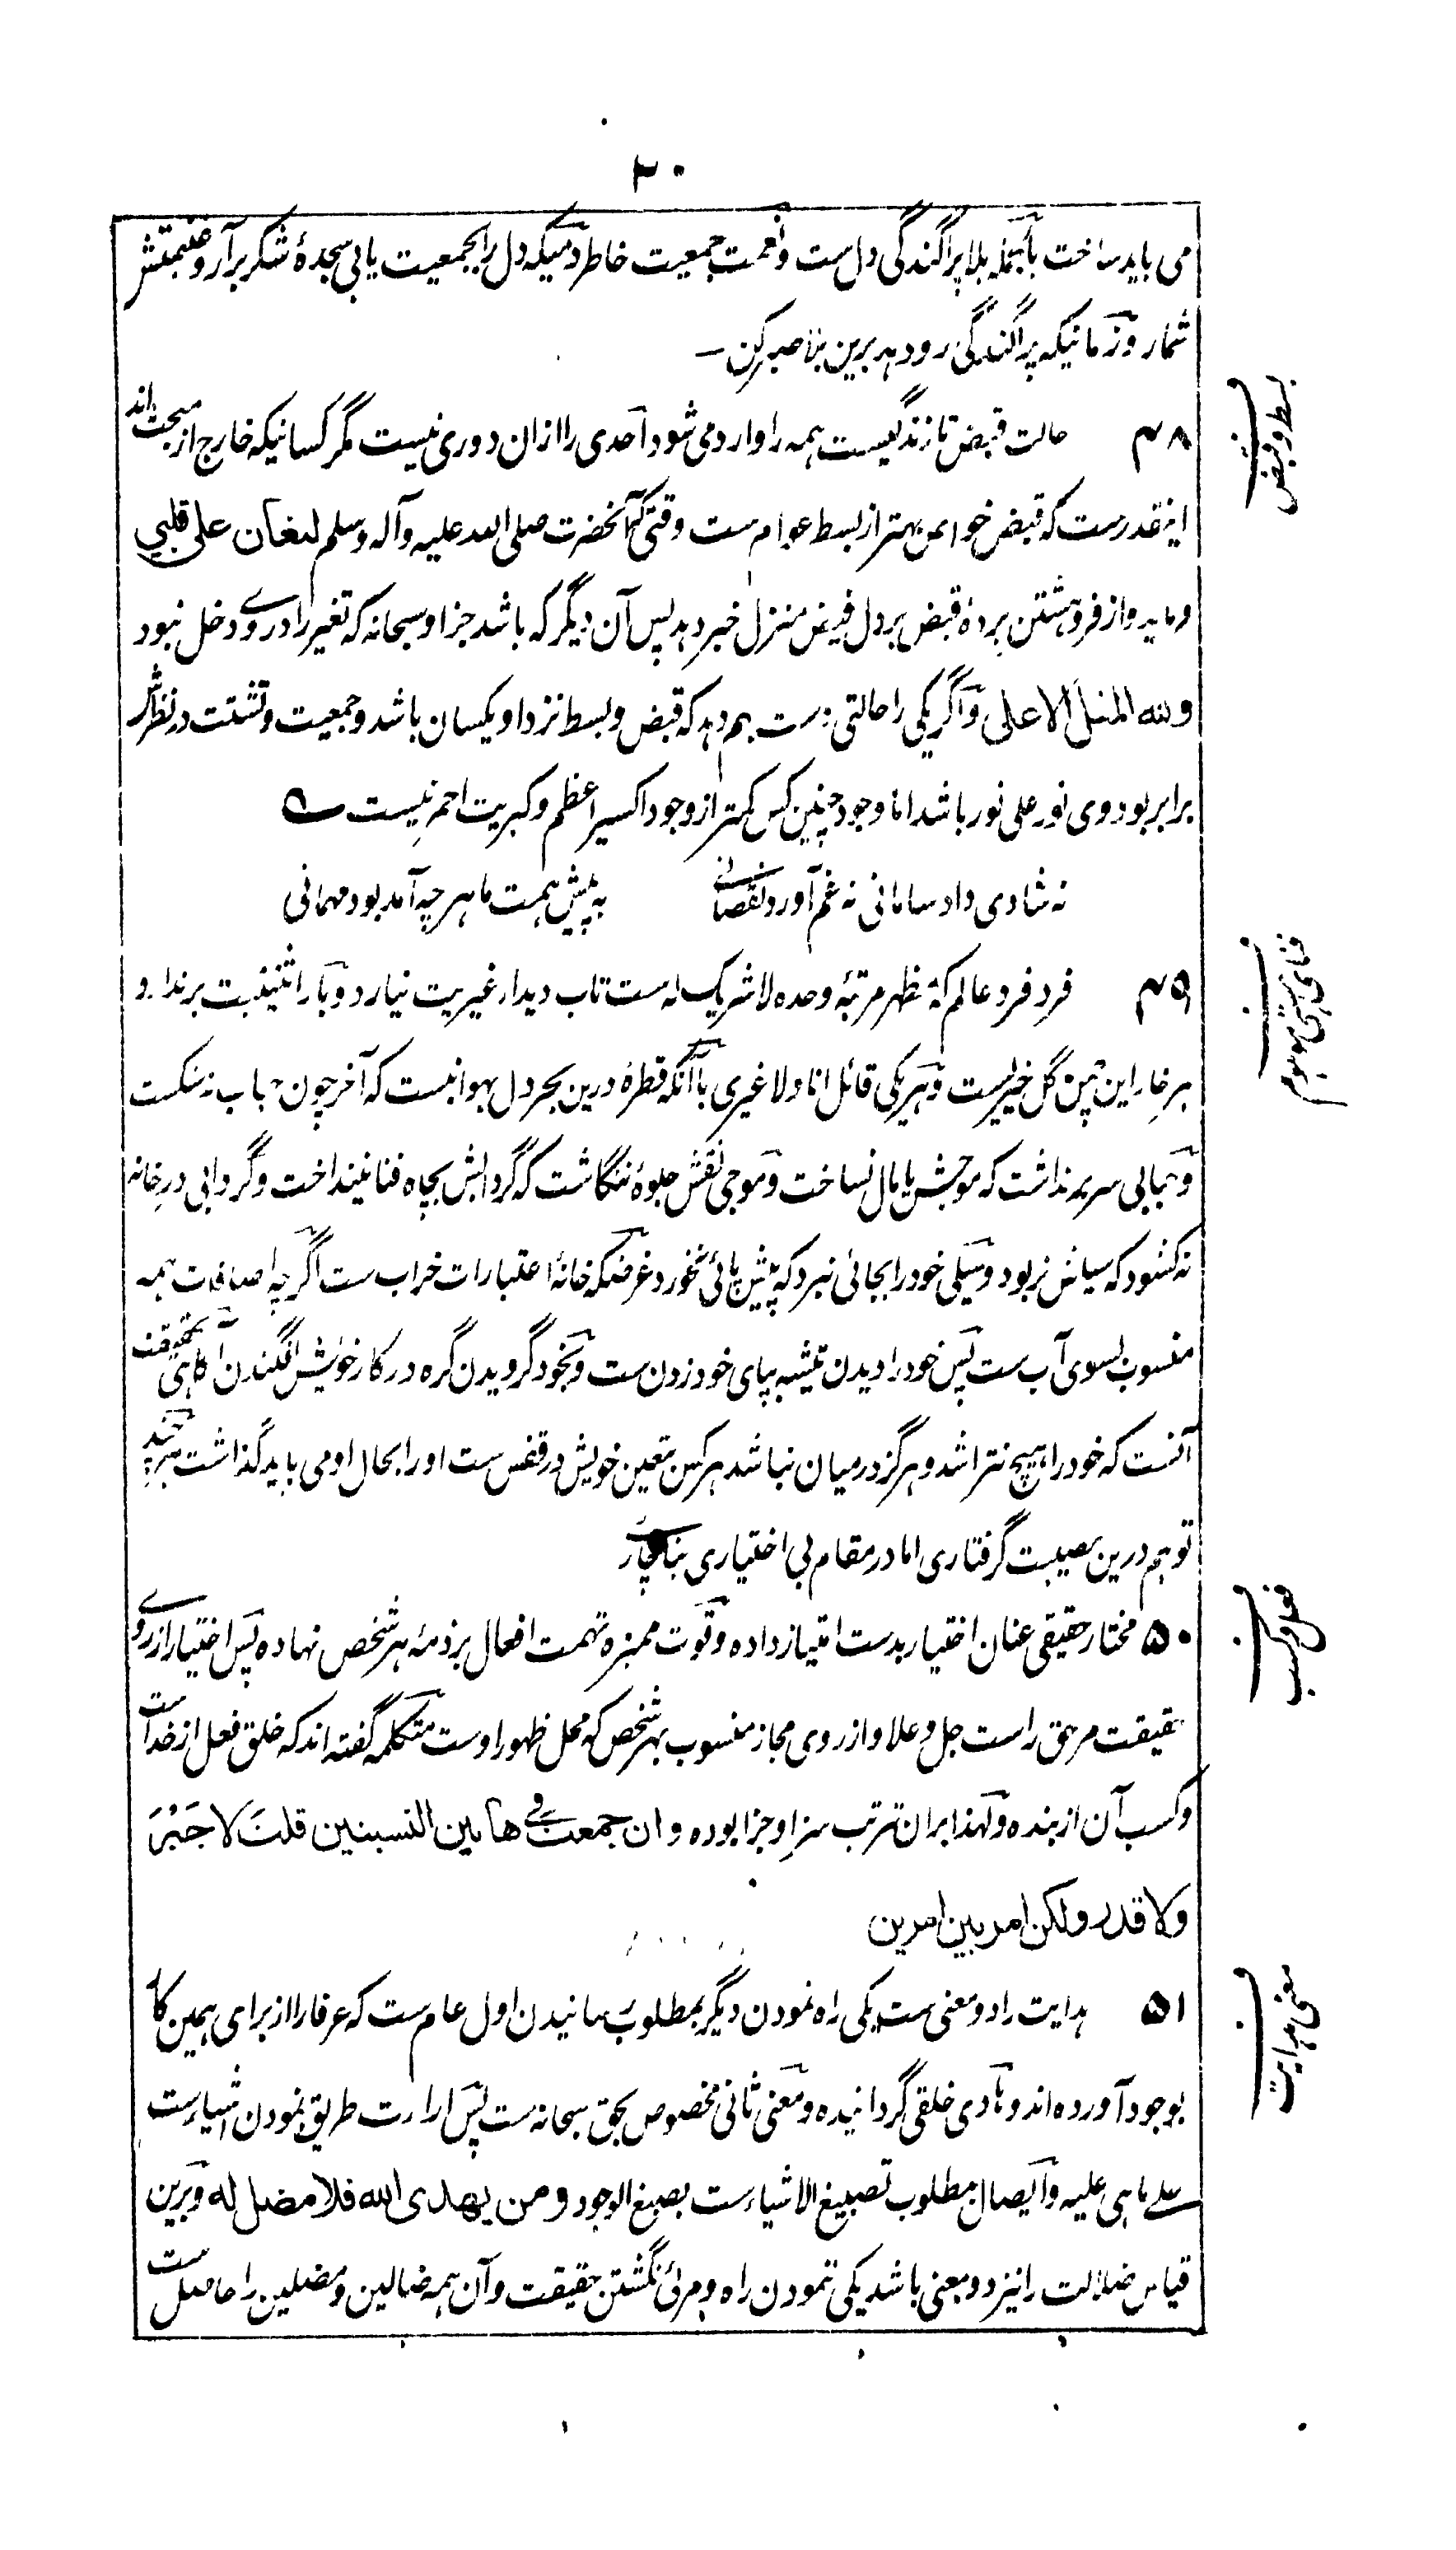 ۳۰
می باید ساخت بآنجمله بلا پراگندگی دل ست و نعمت جمعیت خاطر دمیکه دل را بجمعیت یابی سجدهٔ شکر برآر و غنیمتش
شمار و زمانیکه پراگندگی رو دهد برین بلا صبر کن –
بسط و قبض
۴۸ حالت قبض تا زندگیست همه را وارد می شود احدی را ازان دوری نیست مگر کسانیکه خارج از مبحث اند
اینقدرست که قبض خواص بهتر از بسط عوام ست وقتی که آنحضرت صلی الله علیه وآله وسلم لیغان علی قلبی
فرماید و از فروهشتن پردهٔ قبض بر دل فیض منزل خبر دهد پس آن دیگر که باشد جز او سبحانه که تغیر را در وی دخل نبود
ولله المثل الاعلی و اگر یکی را حالتی دست بهم دهد که قبض و بسط نزد او یکسان باشد و جمعیت و تشتت در نظرش
برابر بود وی نور علی نور باشد اما وجود چنین کس کمتر از وجود اکسیر اعظم و کبریت احمر نیست ؎
نه شادی داد سامانی نه غم آورد نقصانی به پیش همت ما هر چه آمد بود مهمانی
فنای هستی موهوم
۴۹ فرد فرد عالم که مظهر مرتبهٔ وحده لا شریک له ست تاب دیدار غیریت نیارد و بار اثنینیت برندارد
هر خار این چمن گل خیریست و هر یکی قائل انا ولا غیری با آنکه قطرهٔ درین بحر دل بهوا نبست که آخر چون حباب نشکست
و حبابی سر بر نداشت که موجش پایمال نساخت و موجی نقش جلوهٔ ننگاشت که گردابش بچاه فنا نینداخت و گردابی در خانه
نکشود که سیلش نربود و سیلی خود را بجائی نبرد که پیش پائی نخورد غرضکه خانهٔ اعتبارات خراب ست اگرچه اضافات همه
منسوب بسوی آب ست پس خود را دیدن تیشه بپای خود زدن ست و بخود گرویدن گره در کار خویش افگندن آگاهی حقیقت
آنست که خود را هیچ نتراشد و هرگز در میان نباشد هر کس بتعین خویش در قفس ست او را بحال او می باید گذاشت هرچند
تو هم درین مصیبت گرفتاری اما در مقام بی اختیاری بناچار
فعل و کسب
۵۰ مختار حقیقی عنان اختیار بدست امتیاز داده و قوت ممیزه تهمت افعال بر ذمهٔ هر شخص نهاده پس اختیار از روی
حقیقت مر حق راست جل و علا و از روی مجاز منسوب بهر شخص که محل ظهور اوست متکلمه گفته اند که خلق فعل از خداست
و کسب آن از بنده و لهذا بران ترتب سزا و جزا بوده وان جمعت فی هابین النسبتین قلت لا جَبْرَ
ولا قدر ولکن امر بین امرین
معنی هدایت
۵۱ هدایت را دو معنی ست یکی راه نمودن دیگر بمطلوب رسانیدن اول عام ست که عرفا را از برای همین کار
بوجود آورده اند و هادی خلقی گردانیده و معنی ثانی مخصوص بحق سبحانه ست پس ارارت طریق نمودن اشیاءست
علی ما هی علیه و ایصال بمطلوب تصبیغ الاشیاءست بصبغ الوجود ومن یهدی الله فلا مضل له و برین
قیاس ضلالت را نیز دو معنی باشد یکی ننمودن راه و مرئی نگشتن حقیقت و آن همه ضالین و مضلین را حاصل ست